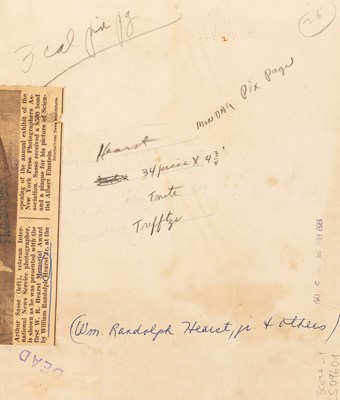 3 cal pix pg
26
MONDAY Pix Page
Hearst
34 picas X 4 3/4"
Arthur Sasse (left), veteran Inter-
national News Service photographer,
is shown as he was presented with the
first W. R. Hearst Memorial Award
by William Randolph Hearst Jr. at the
opening of the annual exhibit of the
New York Press Photographers As-
sociation. Sasse received a $500 bond
and a plaque for his picture of Scien-
tist Albert Einstein.
(Wm. Randolph Hearst, jr. & others)
DEAD